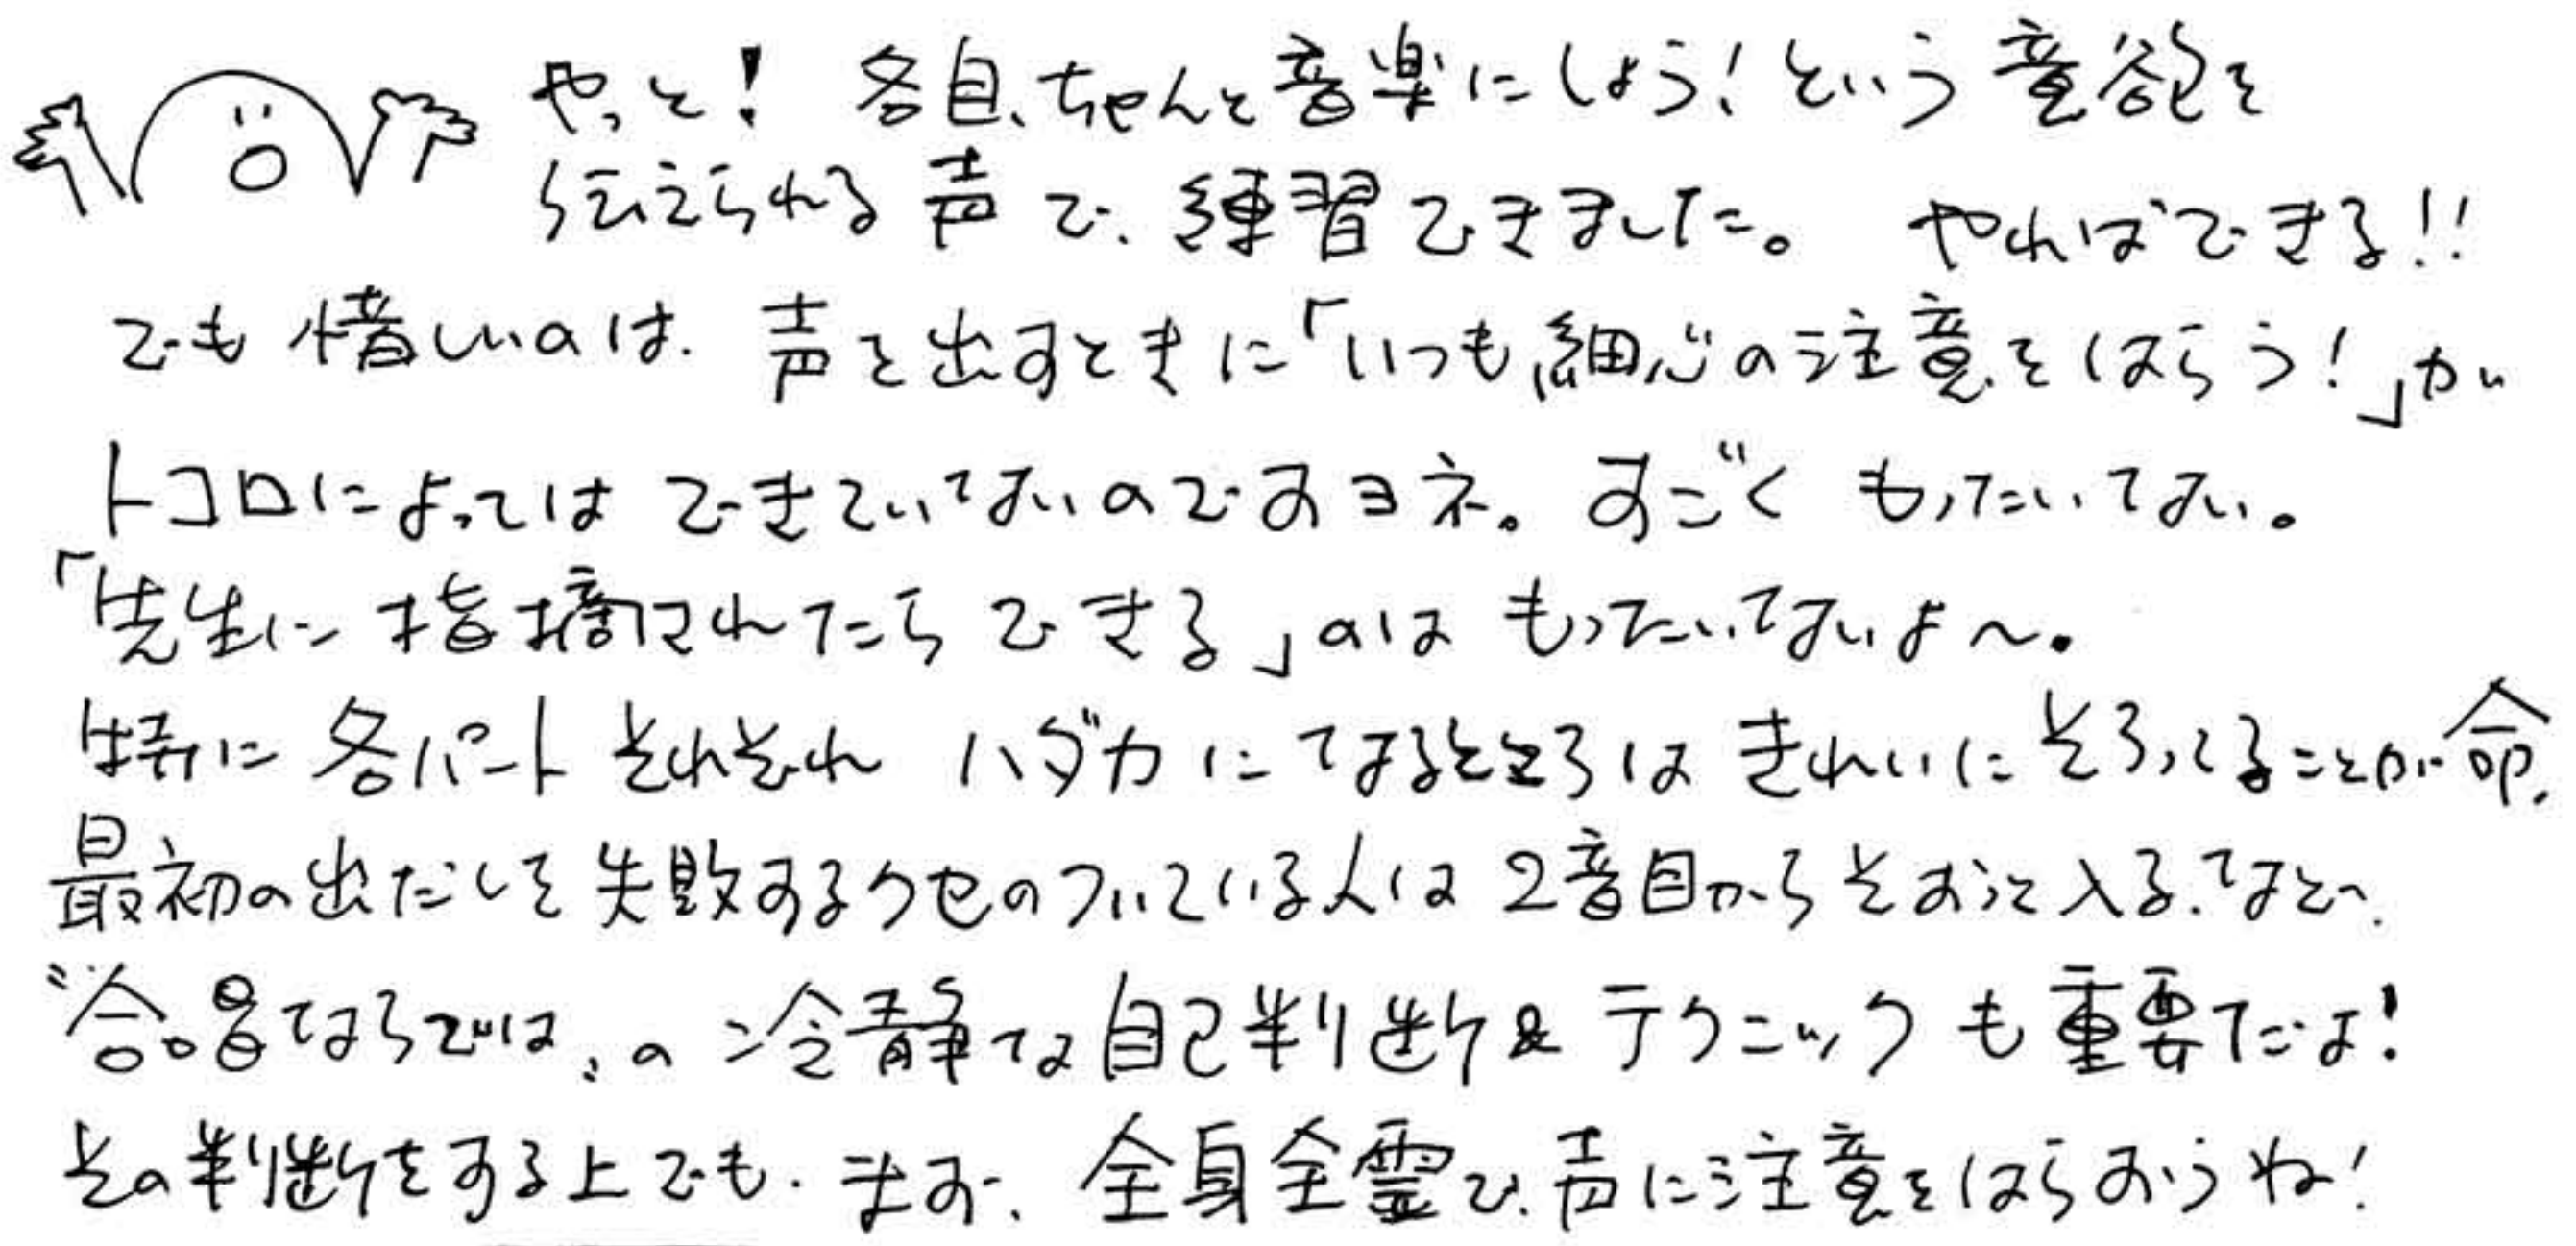 やっと! 各自、ちゃんと音楽にしよう!という意欲を
伝えられる声で、練習できました。 やればできる!!
でも惜しいのは、声を出すときに「いつも細心の注意をはらう!」が
トコロによってはできていないのですヨネ。すごくもったいない。
「先生に指摘されたらできる」のはもったいないよ~。
特に各パートそれぞれハダカになるところはきれいにそろってることが命。
最初の出だしを失敗するクセのついている人は2音目からそおっと入る、など、
〝合唱ならでは〟の冷静な自己判断&テクニックも重要だよ!
その判断をする上でも、まず、全身全霊で、声に注意をはらおうね!